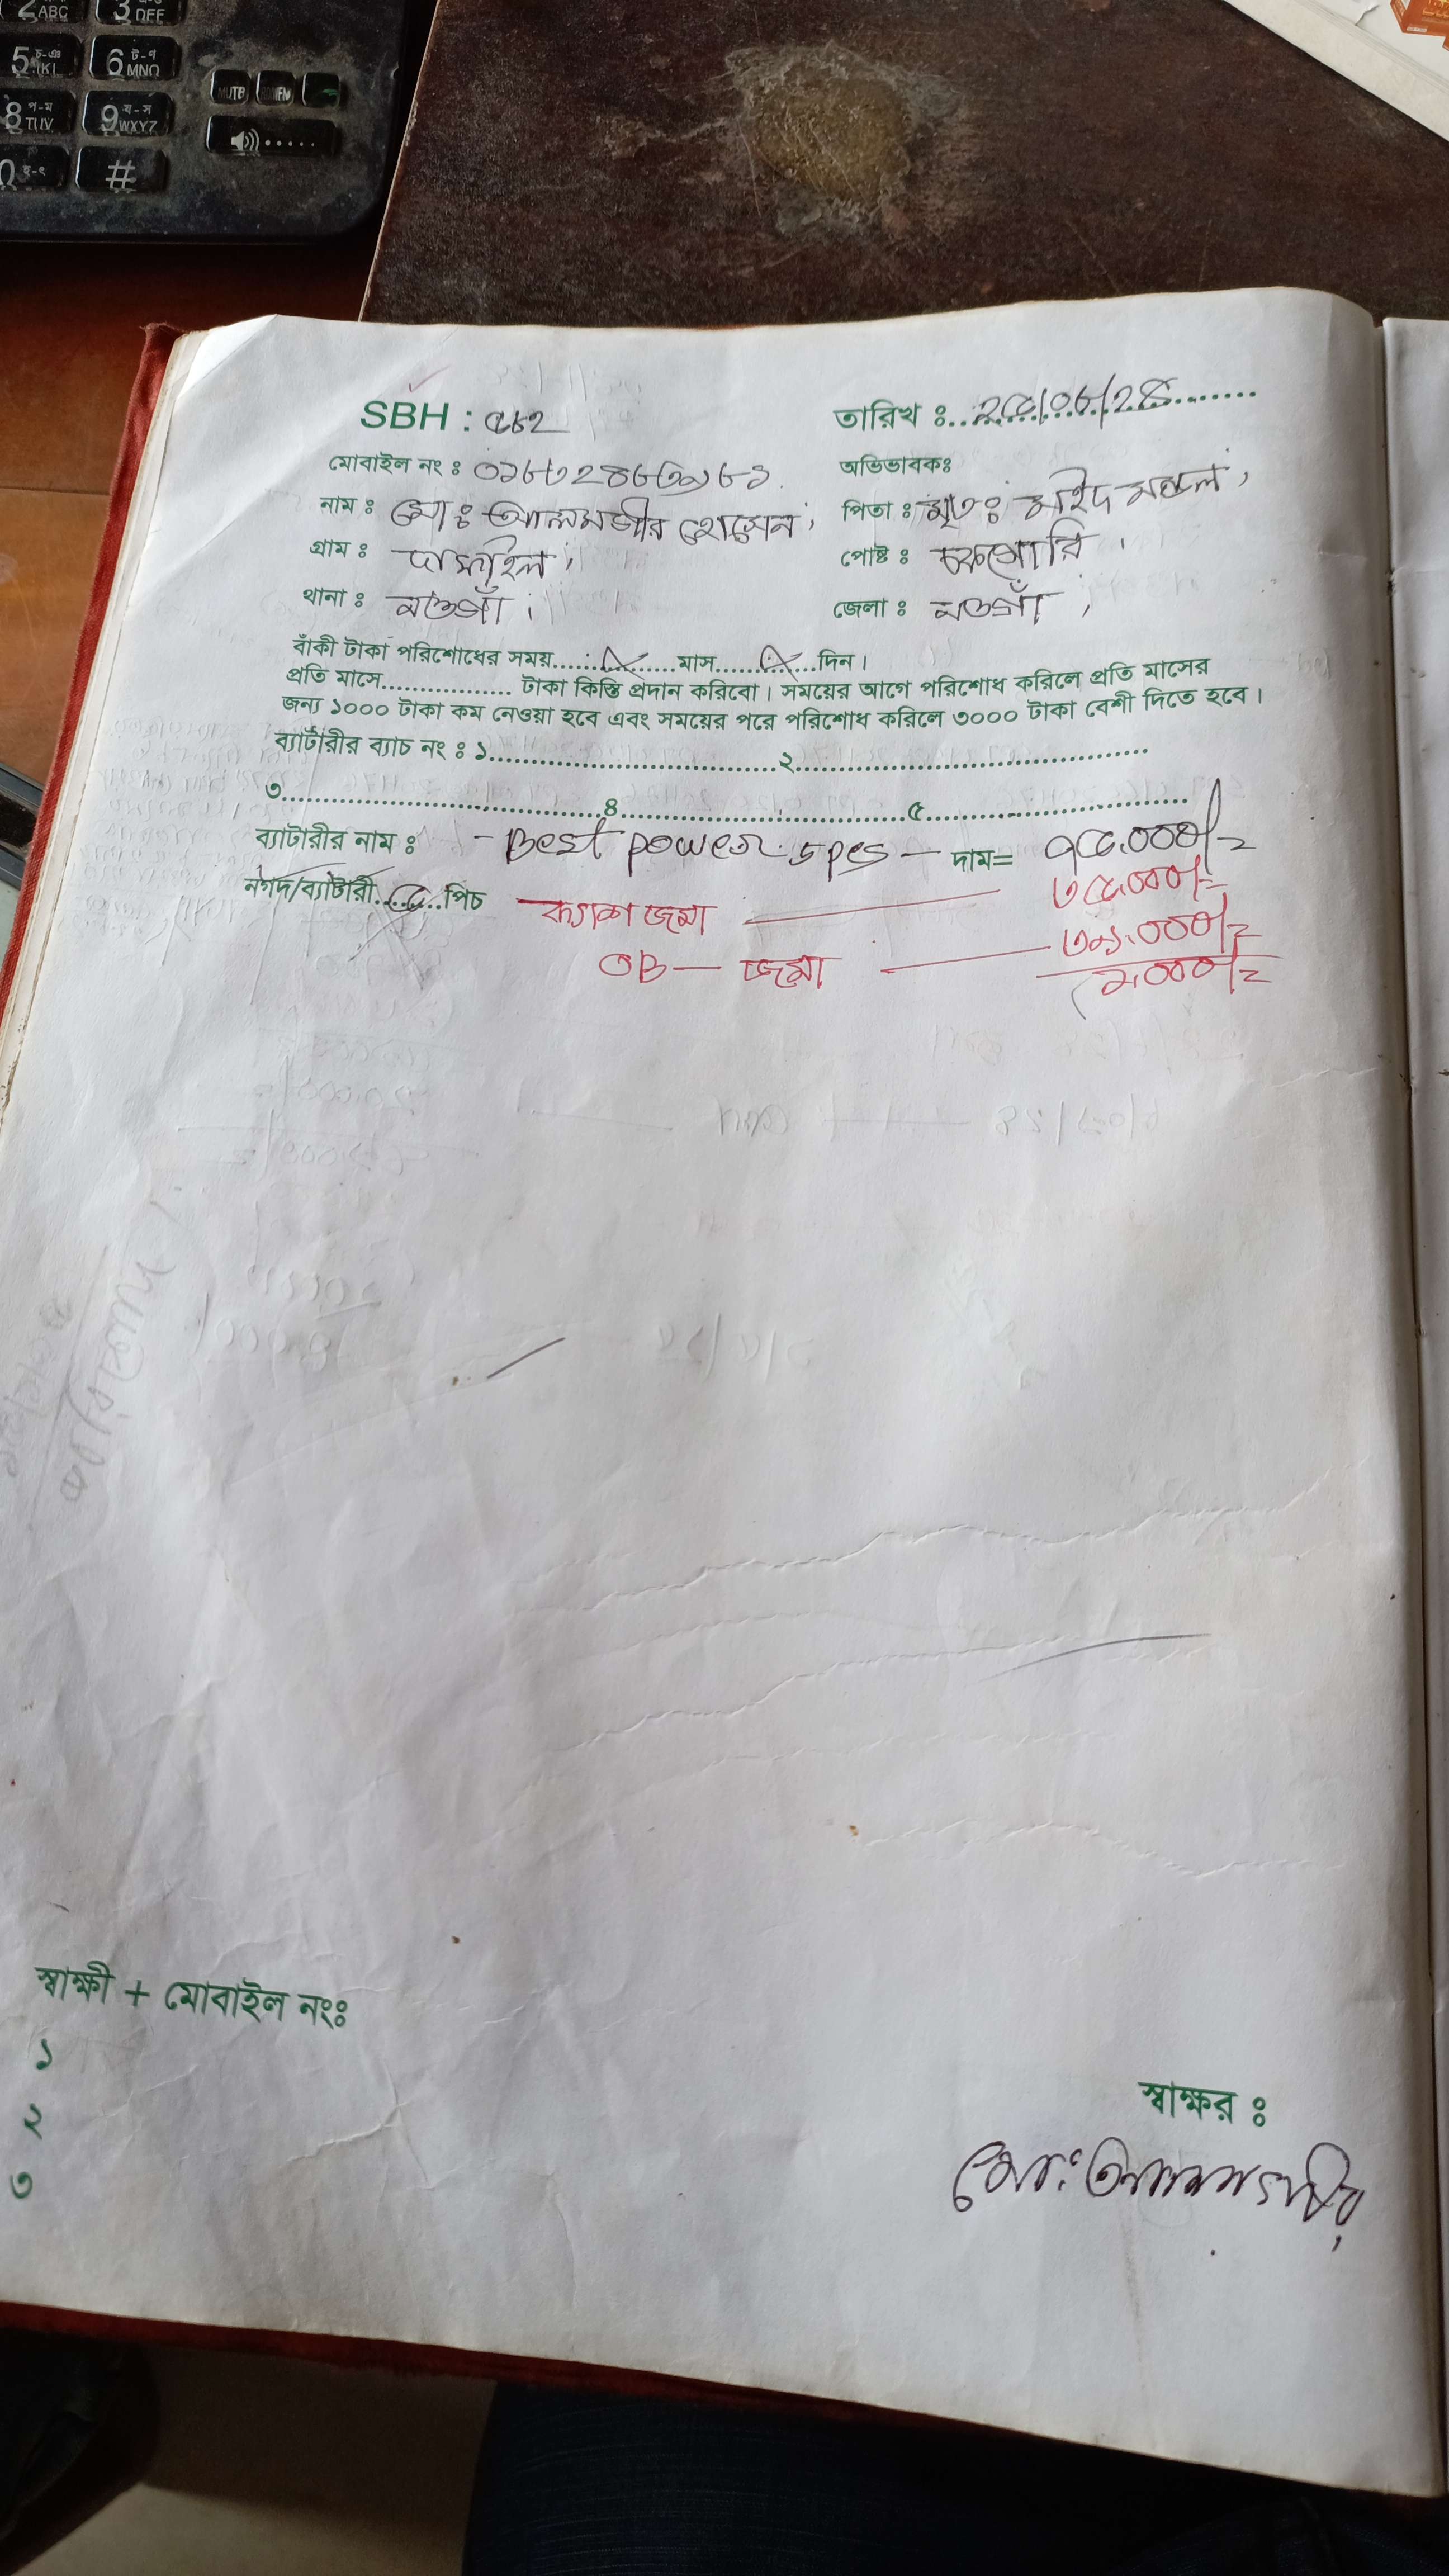 2 ABC 3 DEF
5 চ-ঞ JKL 6 ট-ণ MNO
8 প-ম TUV 9 য-স WXYZ MUTE
0 হ-ৎ #
SBH : ৫৮২ তারিখ ঃ
মোবাইল নং ঃ অভিভাবকঃ
নাম ঃ মোঃ আলমগীর হোসেন, পিতা ঃ মৃতঃ মন্ডল,
গ্রাম ঃ পোষ্ট ঃ
থানা ঃ নওগাঁ । জেলা ঃ নওগাঁ ,
বাঁকী টাকা পরিশোধের সময়...............মাস...............দিন ।
প্রতি মাসে................ টাকা কিস্তি প্রদান করিবো । সময়ের আগে পরিশোধ করিলে প্রতি মাসের
জন্য ১০০০ টাকা কম নেওয়া হবে এবং সময়ের পরে পরিশোধ করিলে ৩০০০ টাকা বেশী দিতে হবে ।
ব্যাটারীর ব্যাচ নং ঃ ১........................................২........................................
৩........................................৪........................................৫........................................
ব্যাটারীর নাম ঃ - Best power 5 pcs — দাম= ৭৫,০০০/=
নগদ/ব্যাটারী...৫...পিচ ক্যাশ জমা — ৩৫,০০০/=
OB — জমা — ৩১,০০০/=
স্বাক্ষী + মোবাইল নংঃ
১
২
৩
স্বাক্ষর ঃ
মোঃ আলমগীর